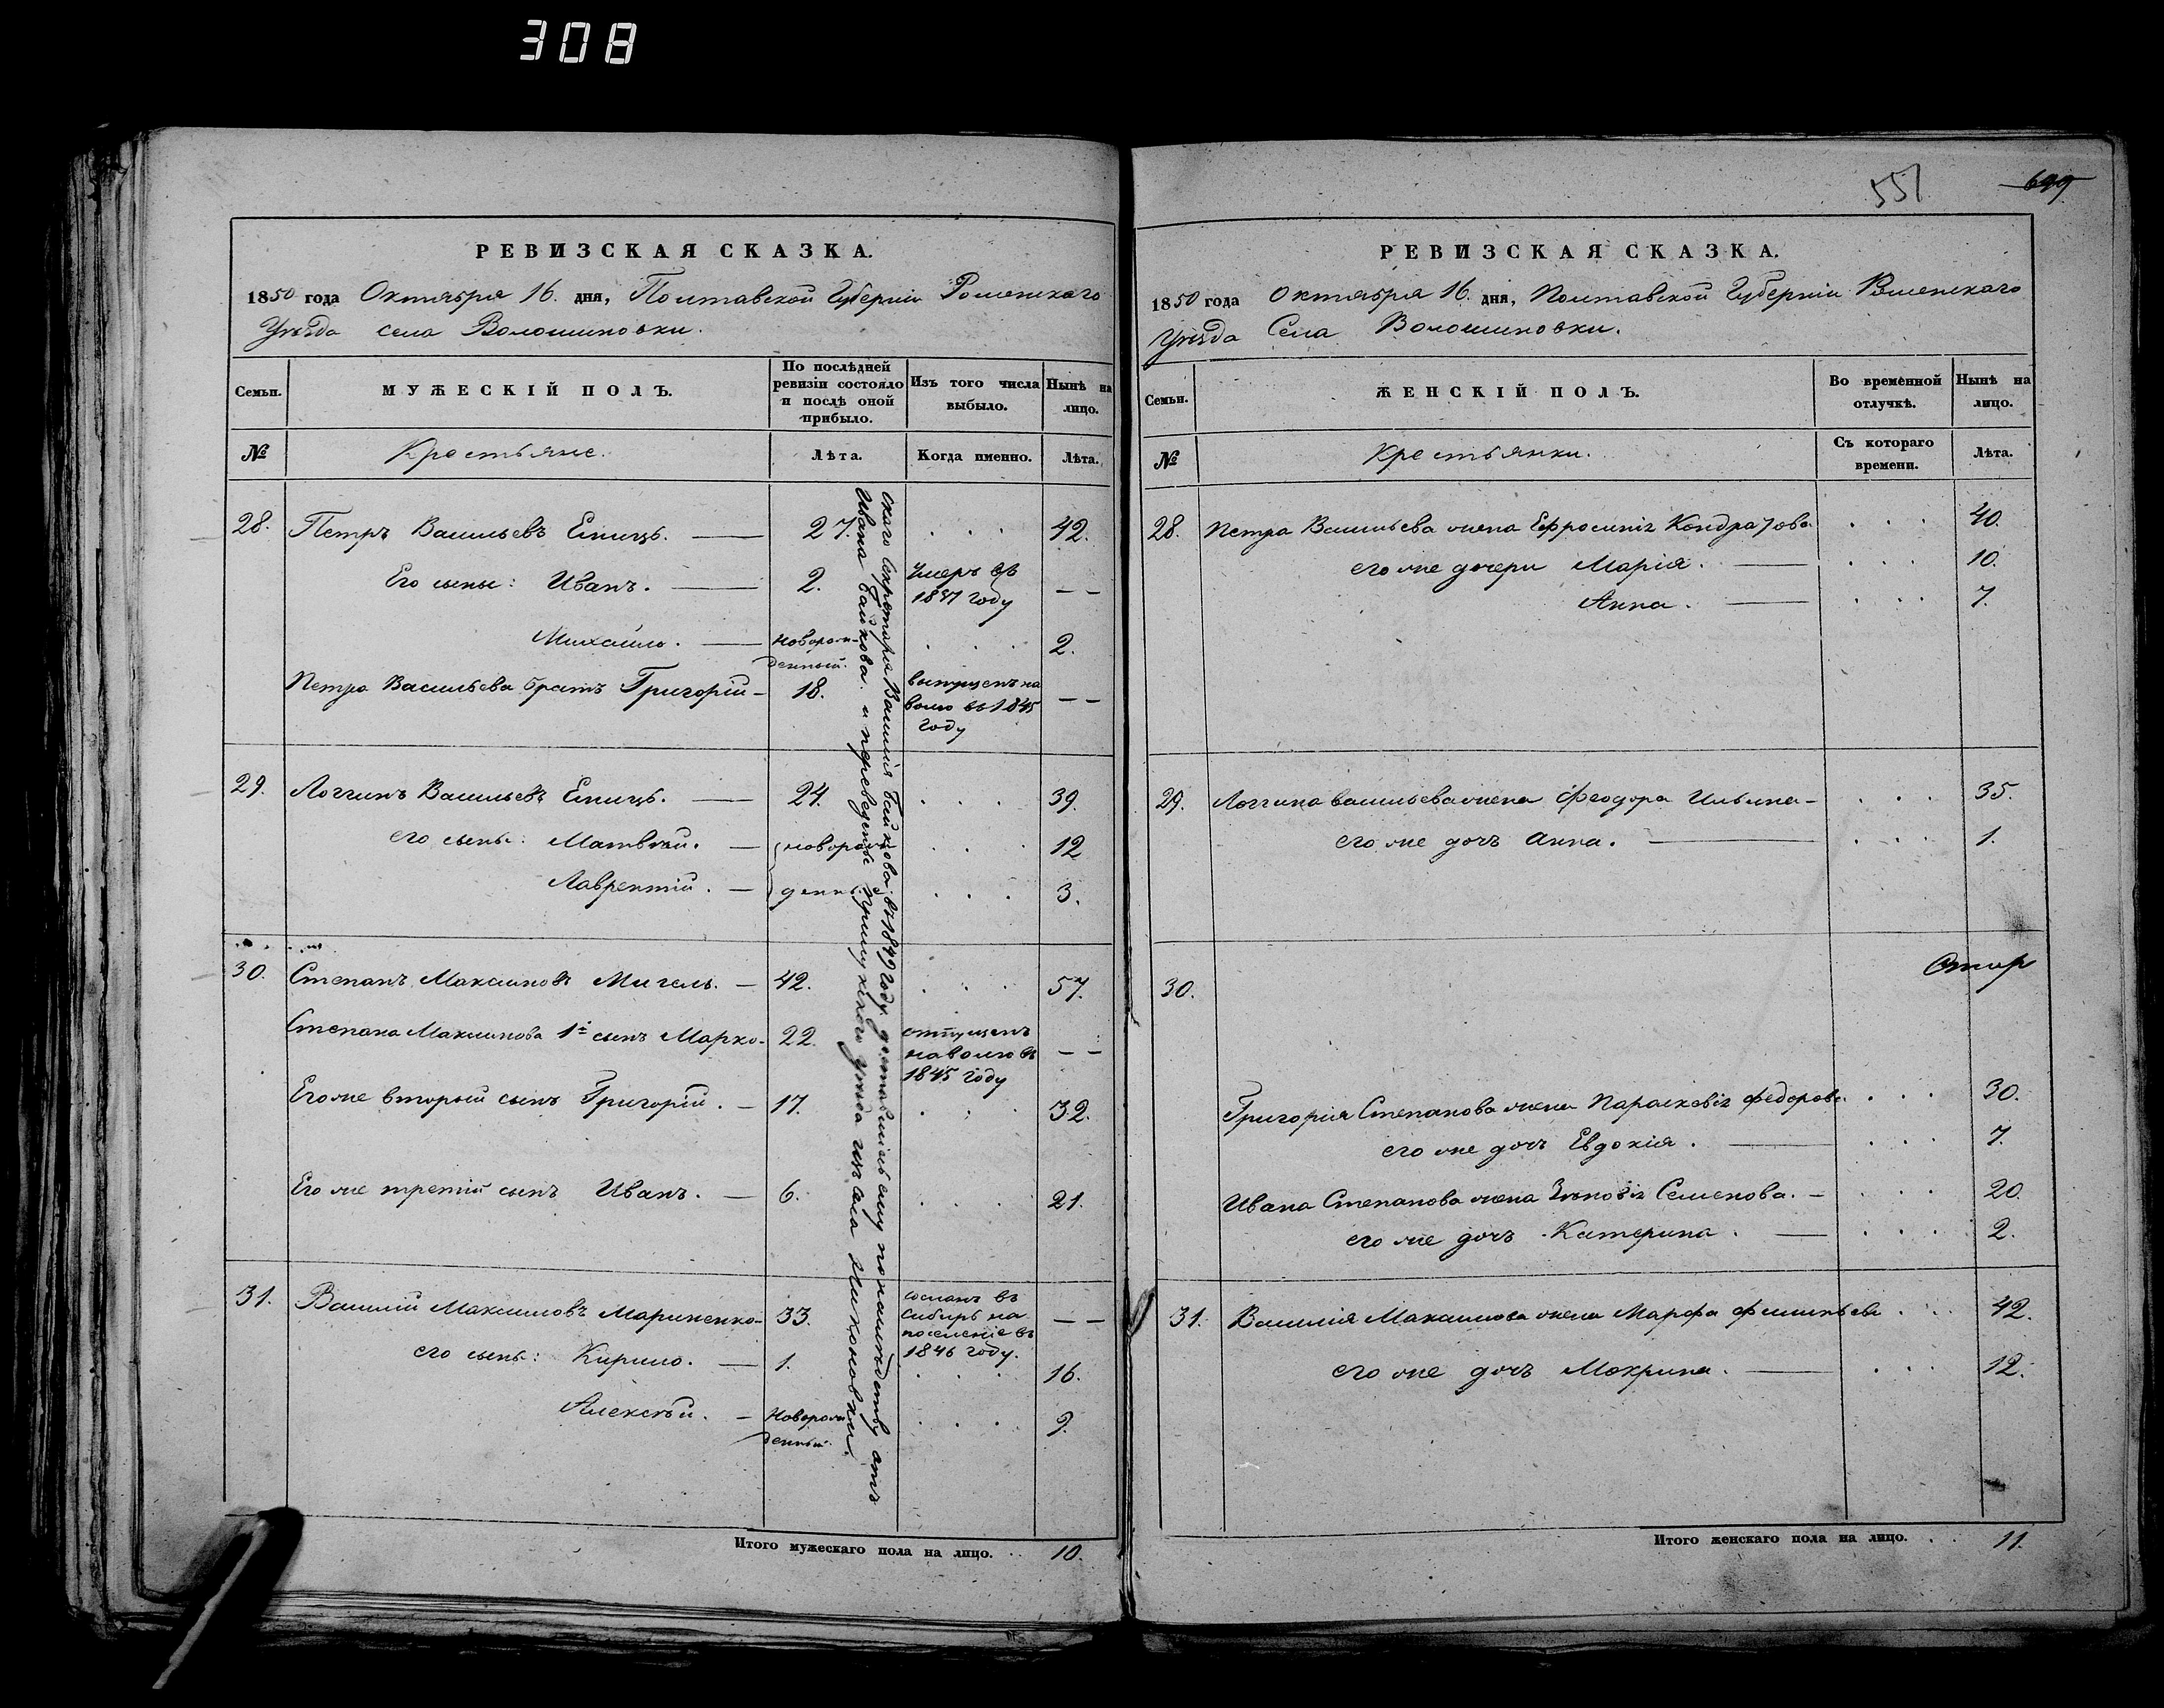 308
РЕВИЗСКАЯ СКАЗКА.
1850 года Октября 16. дня, Полтавской Губерніи Роменскаго
Уѣзда села Волошиновки.
Семьи.
МУЖЕСКІЙ ПОЛЪ.
По послѣдней ревизіи состояло и послѣ оной прибыло.
Изъ того числа выбыло.
Нынѣ на лицо.
№
Крестьяне.
Лѣта.
Когда именно.
Лѣта.
28. Петръ Васильевъ 27. . . . 42.
Его сыны: Иванъ. 2. Умеръ въ 1837 году — —
Михайло. новорож-денный. . . . 2.
Петра Васильева братъ Григорій – 18. выпущенъ на волю въ 1845 году — —
29. Логгинъ Васильевъ 24. . . . 39.
его сыны: Матвѣй. новорож . . . 12
Лаврентій. денн . . . 3.
30. Степанъ Максимовъ Мигель. 42. . . . 57.
Степана Максимова 1й сынъ Марко – 22. отпущенъ на волю въ 1845 году — —
Его же вторый сынъ Григорій. 17. . . . 32.
Его же третій сынъ Иванъ. 6. . . . 21.
31. Василій Максимовъ Мариненко – 33. сосланъ въ Сибирь на поселеніе въ 1846 году. — —
его сыны: Кирило. 1. . . . 16.
Алексѣй. Новорож денный. . . . 9.
скаго Секретаря Василія Байкова, въ 1849 году, доставшимъ ему по наслѣдству отъ
Ивана Байкова. и переведены Прилукскаго уѣзда изъ села
Итого мужескаго пола на лицо. . . 10.
551
699
РЕВИЗСКАЯ СКАЗКА.
1850 года Октября 16. дня, Полтавской Губерніи Роменскаго
Уѣзда Села Волошиновки.
Семьи.
ЖЕНСКІЙ ПОЛЪ.
Во временной отлучкѣ.
Нынѣ на лицо.
№
Крестьянки.
Съ котораго времени.
Лѣта.
28. Петра Васильева жена Ефросинія Кондратова . . . 40.
его же дочери Марія. . . . 10.
Анна. . . . 7.
29. Логгина Васильева жена Феодора Ильина – . . . 35.
его же дочь Анна. . . . 1.
30.
Григорія Степанова жена Параскевія Федорова . . . 30.
его же дочь Евдокія. . . . 7.
Ивана Степанова жена Зѣновія Семенова. – . . . 20.
его же дочь Катерина. . . . 2.
31. Василія Максимова жена Марфа Филипьева . . . 42.
его же дочь Мокрина. . . . 12.
Итого женскаго пола на лицо. . . 11.